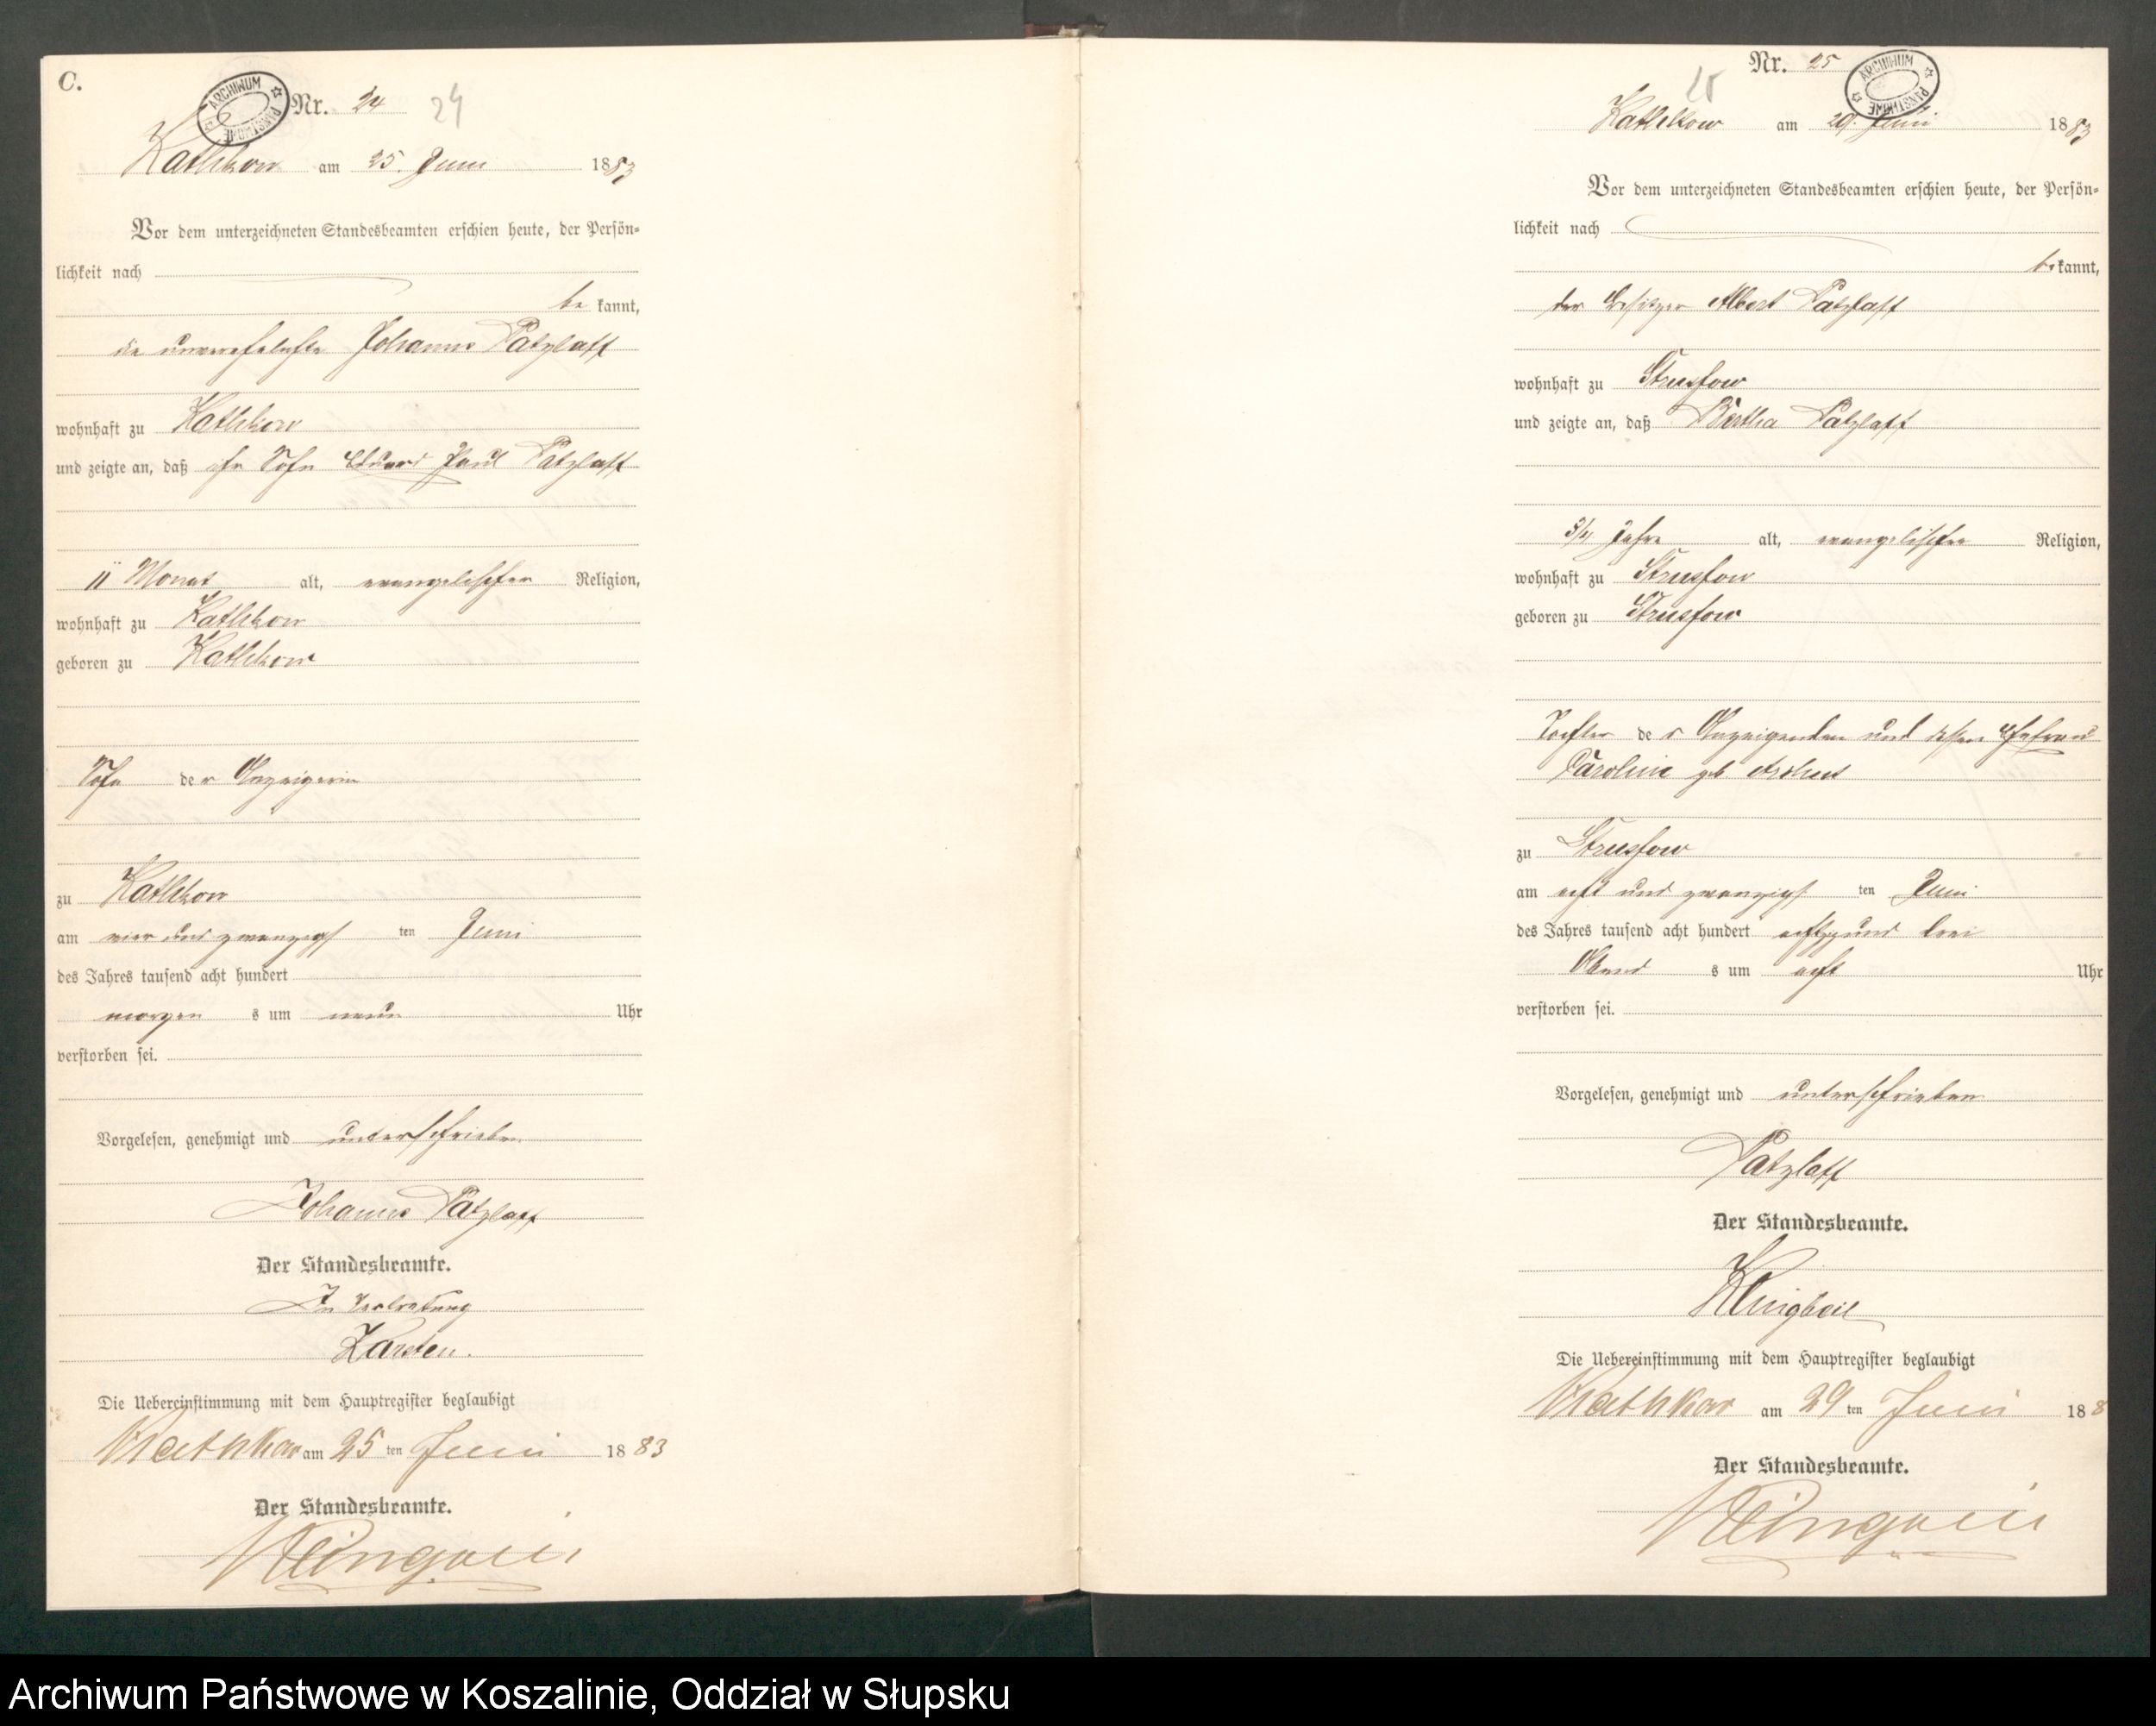 C.
ARCHIWUM PAŃSTWOWE
Nr. 24 24
Kathkow am 25. Juni 1883
Vor dem unterzeichneten Standesbeamten erschien heute, der Persön-
lichkeit nach
be kannt,
die unverehelichte Johanne Patzlaff
wohnhaft zu Kathkow
und zeigte an, daß ihr Sohn Eduard Paul Patzlaff
11 Monat alt, evangelischer Religion,
wohnhaft zu Kathkow
geboren zu Kathkow
Sohn de r Anzeigerin
zu Kathkow
am vier und zwanzigs ten Juni
des Jahres tausend acht hundert
morgen s um neun Uhr
verstorben sei.
Vorgelesen, genehmigt und unterschrieben
Johanne Patzlaff
Der Standesbeamte.
In Vertretung
Karsten.
Die Uebereinstimmung mit dem Hauptregister beglaubigt
Kathkow am 25 ten Juni 18 83
Der Standesbeamte.
Nr. 25
ARCHIWUM PAŃSTWOWE
25
Kathkow am 29. Juni 1883
Vor dem unterzeichneten Standesbeamten erschien heute, der Persön-
lichkeit nach
be kannt,
der Besitzer Albert Patzlaff
wohnhaft zu Strussow
und zeigte an, daß Bertha Patzlaff
3/4 Jahre alt, evangelischer Religion,
wohnhaft zu Strussow
geboren zu Strussow
Tochter de s Anzeigenden und dessen Ehefrau
Caroline geb
zu Strussow
am acht und zwanzigs ten Juni
des Jahres tausend acht hundert achtzig und drei
Abend s um acht Uhr
verstorben sei.
Vorgelesen, genehmigt und unterschrieben
Patzlaff
Der Standesbeamte.
Die Uebereinstimmung mit dem Hauptregister beglaubigt
Kathkow am 29 ten Juni 18 8
Der Standesbeamte.
Archiwum Państwowe w Koszalinie, Oddział w Słupsku